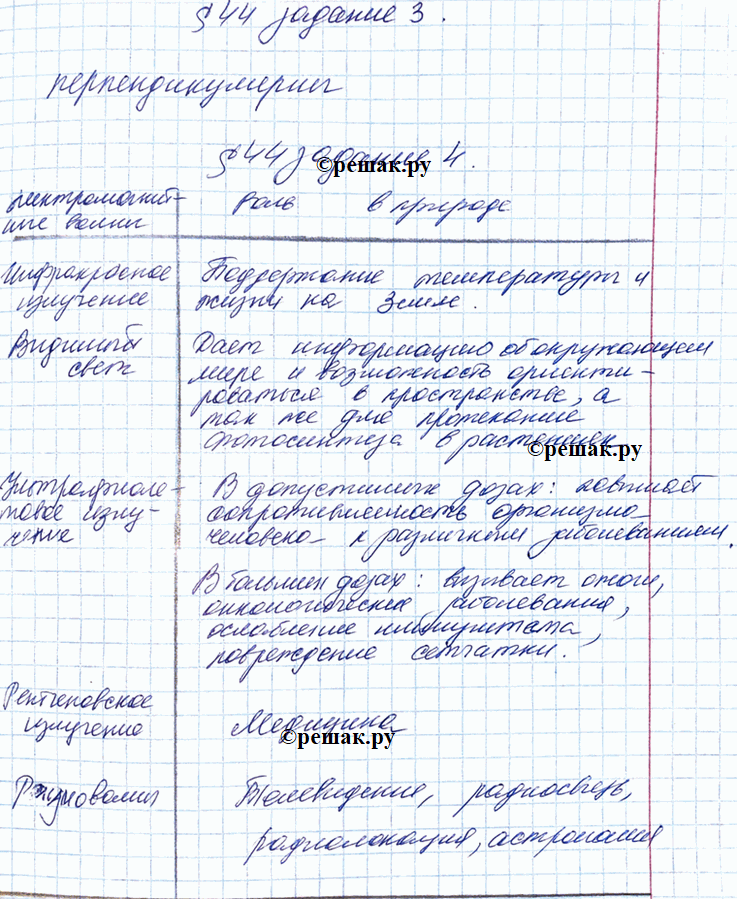 § 44 задание 3.
перпендикулярны
§ 44 задание 4.
©решак.ру
электромагнит-
ные волны
Роль в природе
Инфракрасное
излучение
Поддержание температуры и
жизни на Земле.
Видимый
свет
Дает информацию об окружающем
мире и возможность ориенти-
роваться в пространстве, а
так же для протекание
фотосинтеза в растениях
©решак.ру
Ультрафиоле-
товое излу-
чение
В допустимых дозах: повышает
сопротивляемость организма
человека к различным заболеваниям.
В больших дозах: вызывает ожоги,
онкологические заболевания,
ослабление иммунитета,
повреждение сетчатки.
Рентгеновское
излучение
Медицина
©решак.ру
Радиоволны
Телевидение, радиосвязь,
радиолокация, астрономия